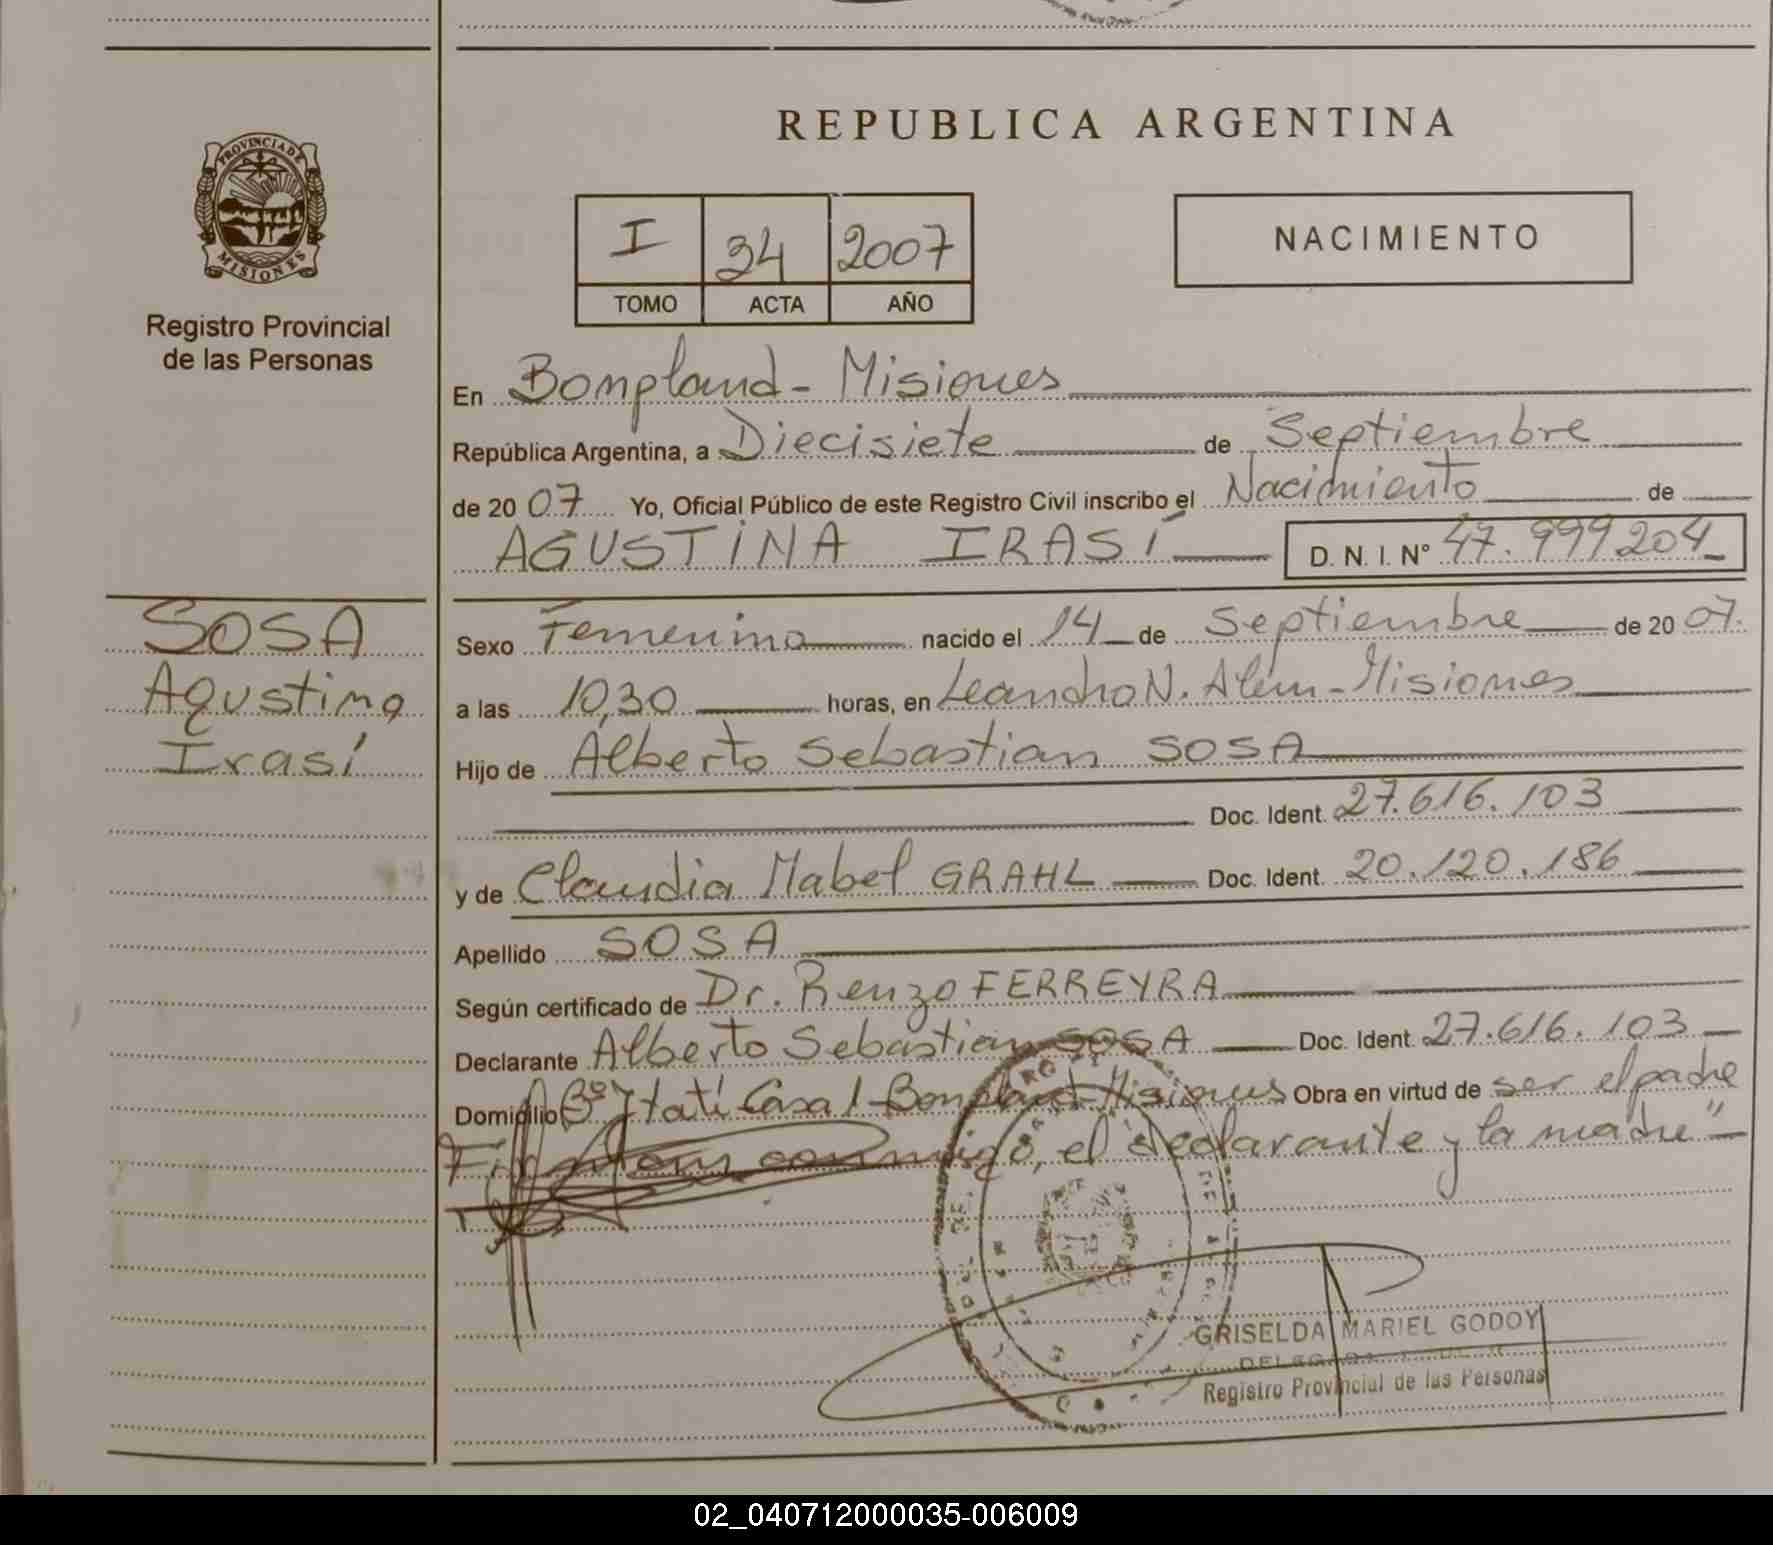 REPUBLICA ARGENTINA
PROVINCIA DE
MISIONES
Registro Provincial
de las Personas
I 34 2007
TOMO ACTA AÑO
NACIMIENTO
En Bompland - Misiones
República Argentina, a Diecisiete de Septiembre
de 20 07 Yo, Oficial Público de este Registro Civil inscribo el Nacimiento de
AGUSTINA IRASÍ D. N. I. N° 47.999204
SOSA
Agustina
Irasí
Sexo Femenino nacido el 14 de Septiembre de 20 07.
a las 10,30 horas, en Leandro N. Alem - Misiones
Hijo de Alberto Sebastian SOSA
Doc. Ident. 27.616.103
y de Claudia Mabel GRAHL Doc. Ident. 20.120.186
Apellido SOSA
Según certificado de Dr. Renzo FERREYRA
Declarante Alberto Sebastian SOSA Doc. Ident. 27.616.103
Domicilio B° Itatí Casa 1 - Bompland - Misiones Obra en virtud de ser el padre
conmigo, el declarante y la madre"
GRISELDA MARIEL GODOY
Registro Provincial de las Personas
02_040712000035-006009